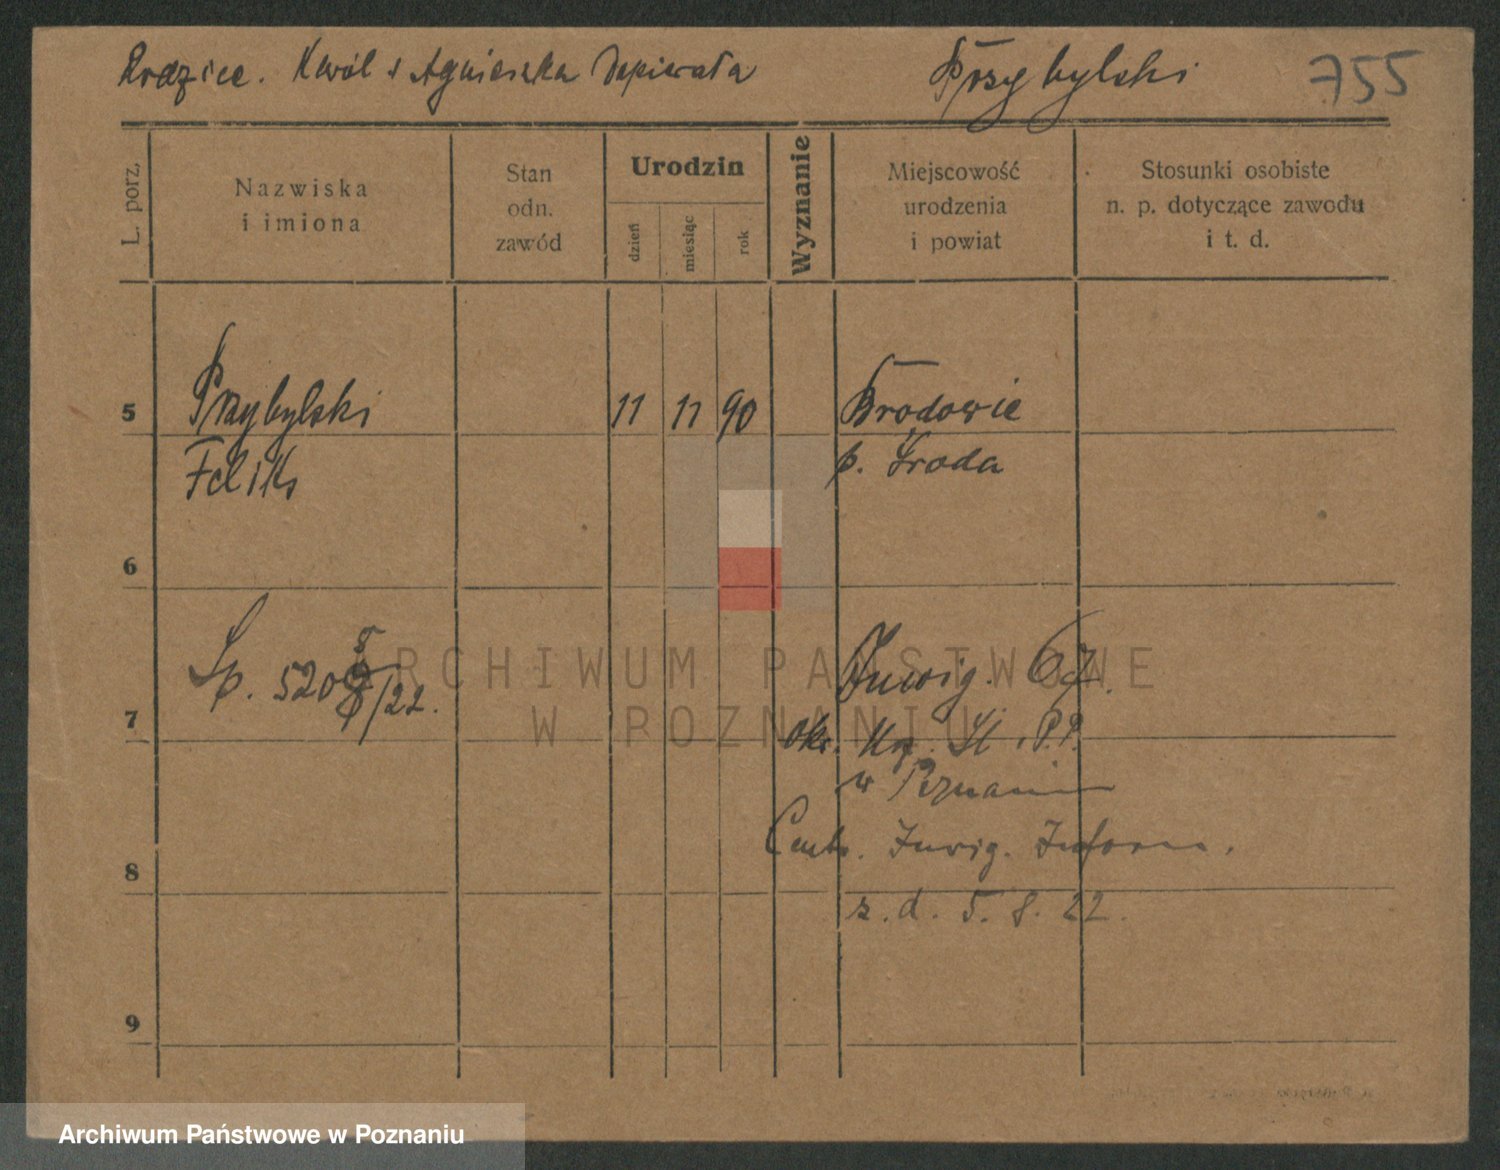 Rodzice. Karól + Agnieszka Dopierała Przybylski 755
L. porz.
Nazwiska i imiona
Stan odn. zawód
Urodzin
dzień miesiąc rok
Wyznanie
Miejscowość urodzenia i powiat
Stosunki osobiste n. p. dotyczące zawodu i t. d.
5 Przybylski 11 11 90 Brodowie
Feliks p. Środa
6
Lp. 520 /22. Inwig.
7
Okr. P.P.
w Poznaniu
Centr. Inwig. Inform.
8
z. d. 5. 8. 22.
9
ARCHIWUM PAŃSTWOWE
W POZNANIU
Archiwum Państwowe w Poznaniu